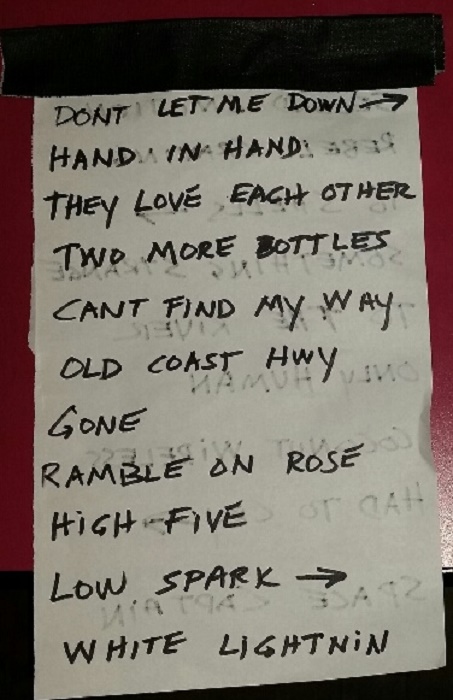 DONT LET ME DOWN →
HAND IN HAND
THEY LOVE EACH OTHER
TWO MORE BOTTLES
CANT FIND MY WAY
OLD COAST HWY
GONE
RAMBLE ON ROSE
HIGH-FIVE
LOW SPARK →
WHITE LIGHTNIN